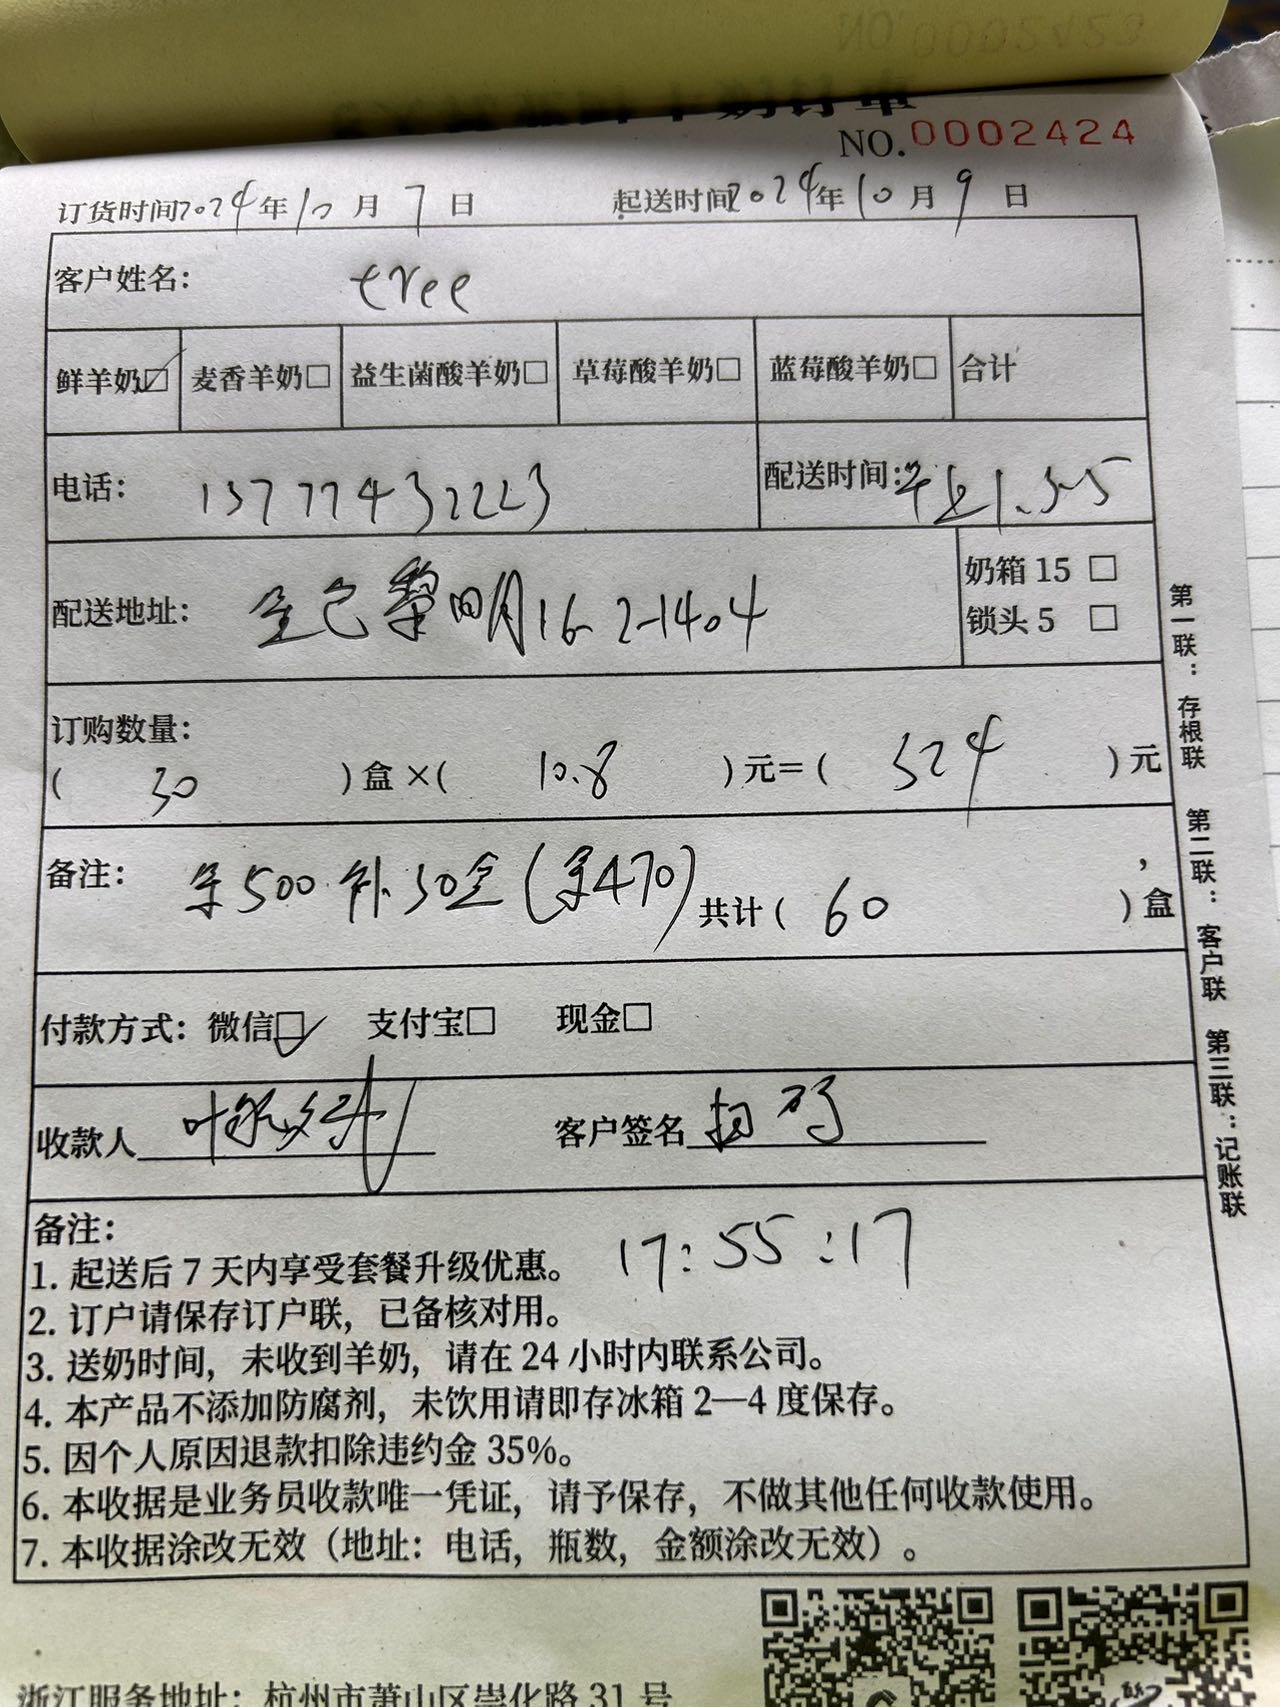 NO.0002424
订货时间2024年10月7日 起送时间2024年10月9日
客户姓名: tree
鲜羊奶☑ 麦香羊奶□ 益生菌酸羊奶□ 草莓酸羊奶□ 蓝莓酸羊奶□ 合计
电话: 13777432223 配送时间: 1.3.5
配送地址: 黎明16-2-1404 奶箱 15 □
锁头 5 □
订购数量:
( 30 )盒×( 10.8 )元=( 324 )元
备注: 500 补30盒(470)共计( 60 )盒
付款方式: 微信☑ 支付宝□ 现金□
收款人 叶 客户签名 扫码
备注:
17:55:17
1. 起送后 7 天内享受套餐升级优惠。
2. 订户请保存订户联，已备核对用。
3. 送奶时间，未收到羊奶，请在 24 小时内联系公司。
4. 本产品不添加防腐剂，未饮用请即存冰箱 2—4 度保存。
5. 因个人原因退款扣除违约金 35%。
6. 本收据是业务员收款唯一凭证，请予保存，不做其他任何收款使用。
7. 本收据涂改无效（地址：电话，瓶数，金额涂改无效）。
第一联：存根联 第二联：客户联 第三联：记账联
浙江服务地址：杭州市萧山区崇化路 31 号